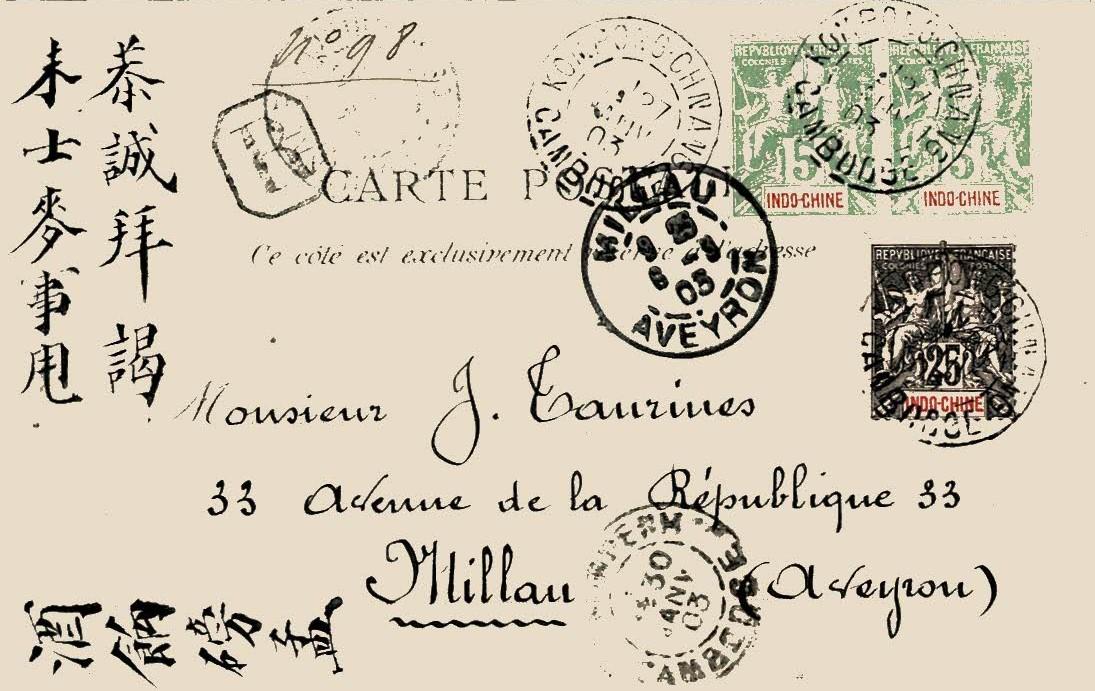 恭誠拜謁
未士麥事甩
Nº 98.
KOMPONG-CHNANG
JANV 03
CAMBODGE
REPVBLIQVE FRANÇAISE
COLONIES POSTES
5
INDO-CHINE
REPVBLIQVE FRANÇAISE
COLONIES POSTES
5
INDO-CHINE
KOMPONG-CHNANG
CAMBODGE
R
CARTE POSTALE
Ce côté est exclusivement réservé à l'adresse
MILLAU
03
AVEYRON
REPVBLIQVE FRANÇAISE
COLONIES POSTES
25
INDO-CHINE
CAMBODGE
Monsieur J. Taurines
33 Avenue de la République 33
Millau (Aveyron)
30
JANV
03
CAMBODGE